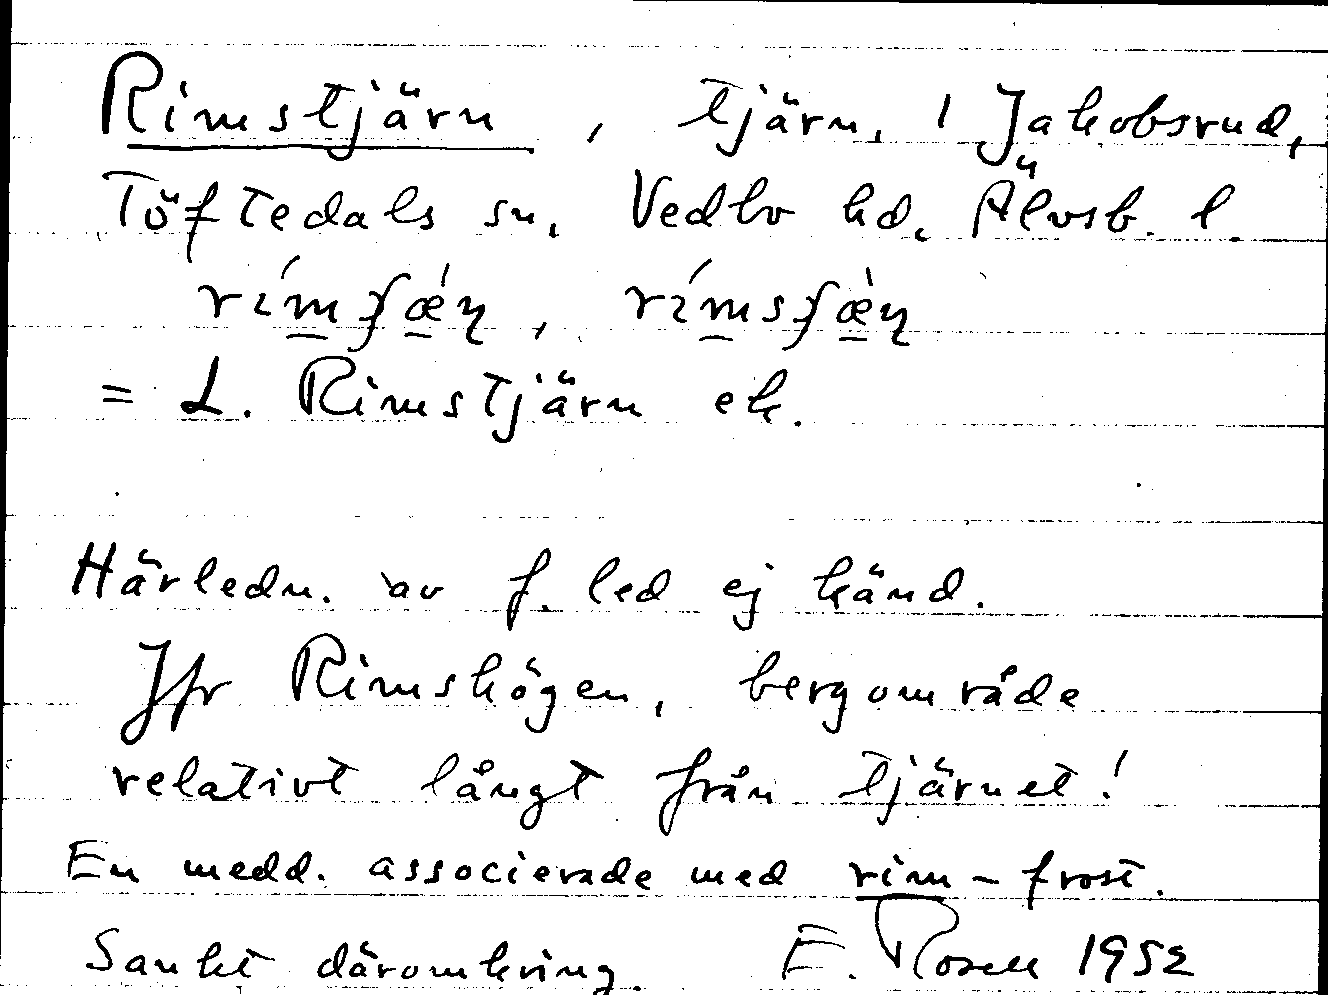 Rimstjärn, tjärn, i Jakobsrud,
Töftedals sn, Vedbo hd, Älvsb. l.
= L. Rimstjärn ek.
Härledn. av f. led ej känd.
Jfr Rimshögen, bergområde
relativt långt från tjärnet!
En medd. associerade med rim-frost.
Sankt däromkring. E. Rosell 1952